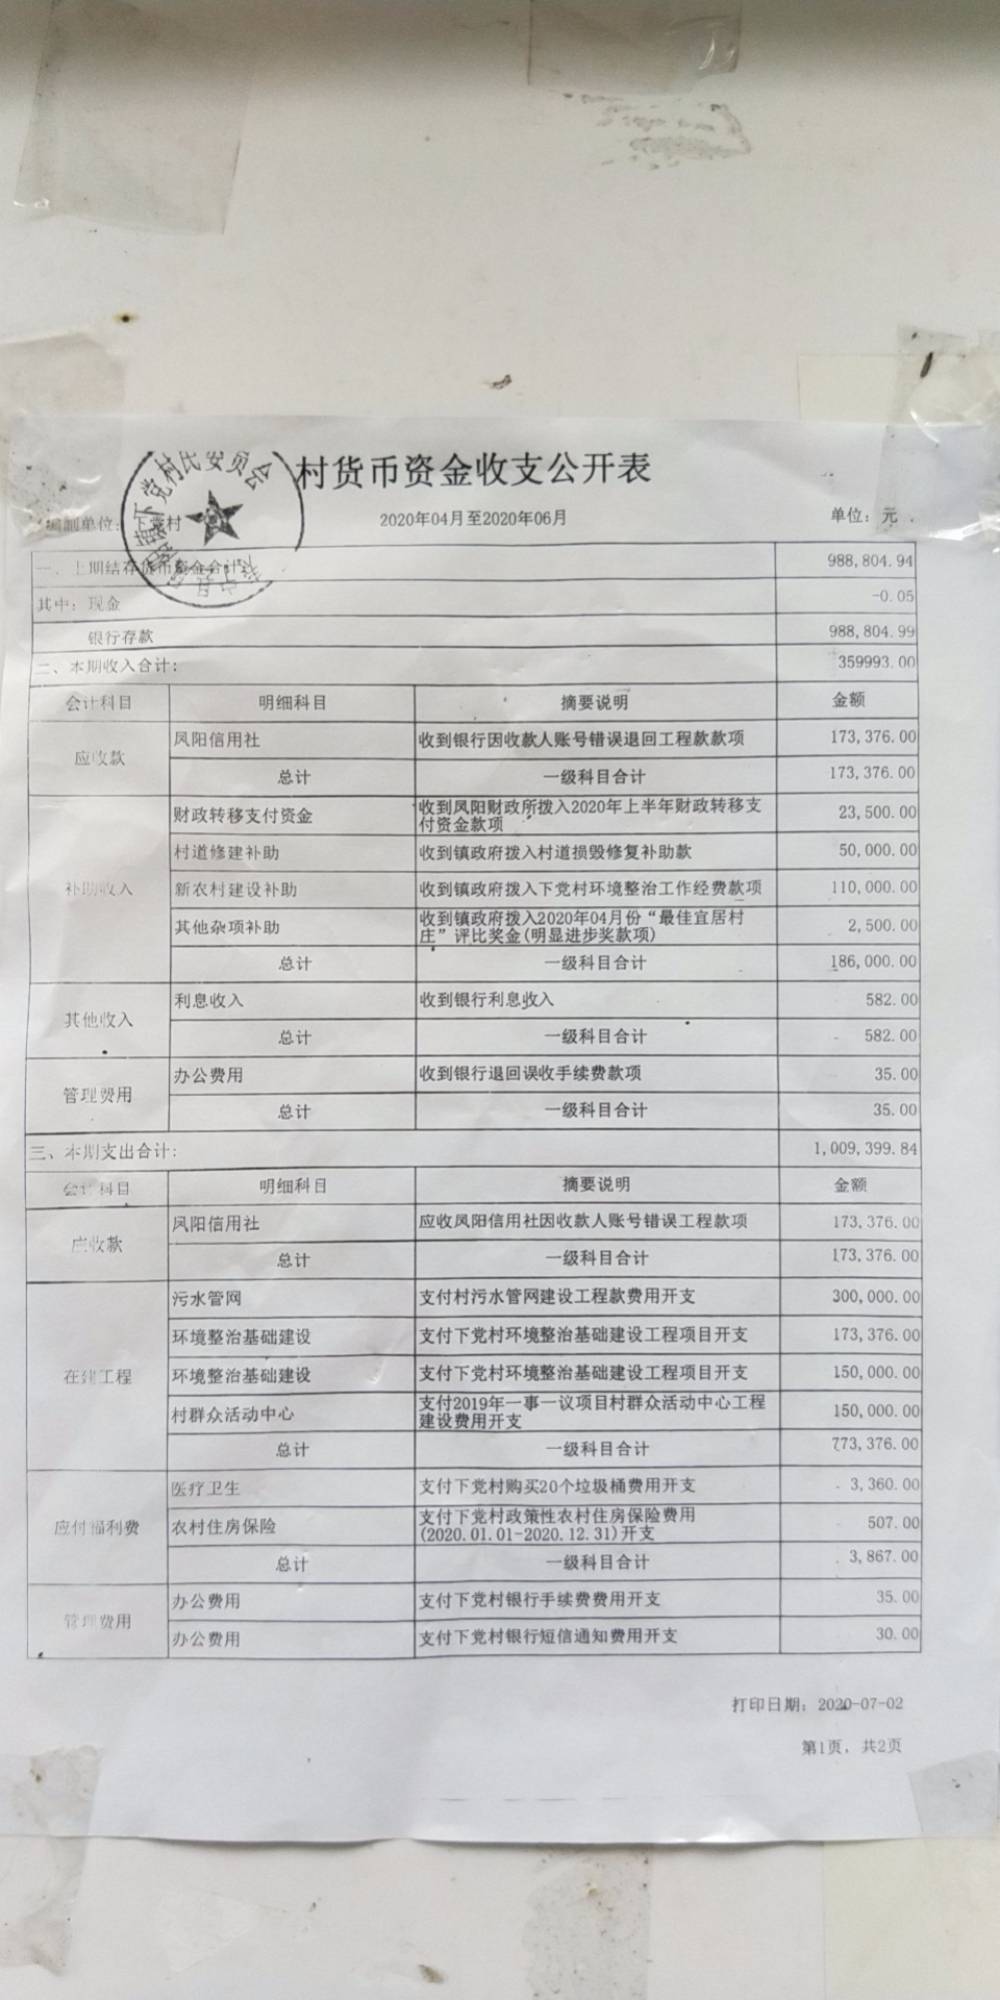 村货币资金收支公开表
下党村民委员会
编制单位：下党村 2020年04月至2020年06月 单位：元
一、上期结存货币资金合计： 988,804.94
其中：现金 -0.05
银行存款 988,804.99
二、本期收入合计： 359993.00
会计科目 明细科目 摘要说明 金额
应收款 凤阳信用社 收到银行因收款人账号错误退回工程款款项 173,376.00
总计 一级科目合计 173,376.00
补助收入 财政转移支付资金 收到凤阳财政所拨入2020年上半年财政转移支
付资金款项 23,500.00
村道修建补助 收到镇政府拨入村道损毁修复补助款 50,000.00
新农村建设补助 收到镇政府拨入下党村环境整治工作经费款项 110,000.00
其他杂项补助 收到镇政府拨入2020年04月份“最佳宜居村
庄”评比奖金(明显进步奖款项) 2,500.00
总计 一级科目合计 186,000.00
其他收入 利息收入 收到银行利息收入 582.00
总计 一级科目合计 582.00
管理费用 办公费用 收到银行退回误收手续费款项 35.00
总计 一级科目合计 35.00
三、本期支出合计： 1,009,399.84
会计科目 明细科目 摘要说明 金额
应收款 凤阳信用社 应收凤阳信用社因收款人账号错误工程款项 173,376.00
总计 一级科目合计 173,376.00
在建工程 污水管网 支付村污水管网建设工程款费用开支 300,000.00
环境整治基础建设 支付下党村环境整治基础建设工程项目开支 173,376.00
环境整治基础建设 支付下党村环境整治基础建设工程项目开支 150,000.00
村群众活动中心 支付2019年一事一议项目村群众活动中心工程
建设费用开支 150,000.00
总计 一级科目合计 773,376.00
应付福利费 医疗卫生 支付下党村购买20个垃圾桶费用开支 3,360.00
农村住房保险 支付下党村政策性农村住房保险费用
(2020.01.01-2020.12.31)开支 507.00
总计 一级科目合计 3,867.00
管理费用 办公费用 支付下党村银行手续费费用开支 35.00
办公费用 支付下党村银行短信通知费用开支 30.00
打印日期：2020-07-02
第1页，共2页